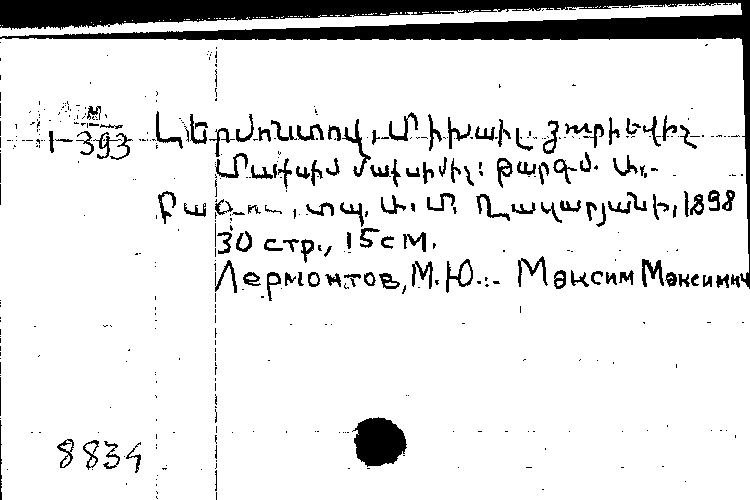 Арм.
1-393 Լերմոնտով, Միխաիլ Յուրիեվիչ
Մաքսիմ Մաքսիմիչ: Թարգմ. Ար.-
Բագու, տպ. Ա. Մ. Ղազարյանի, 1898
30 стр., 15см.
Лермонтов, М.Ю.:- Максим Максимич
8834